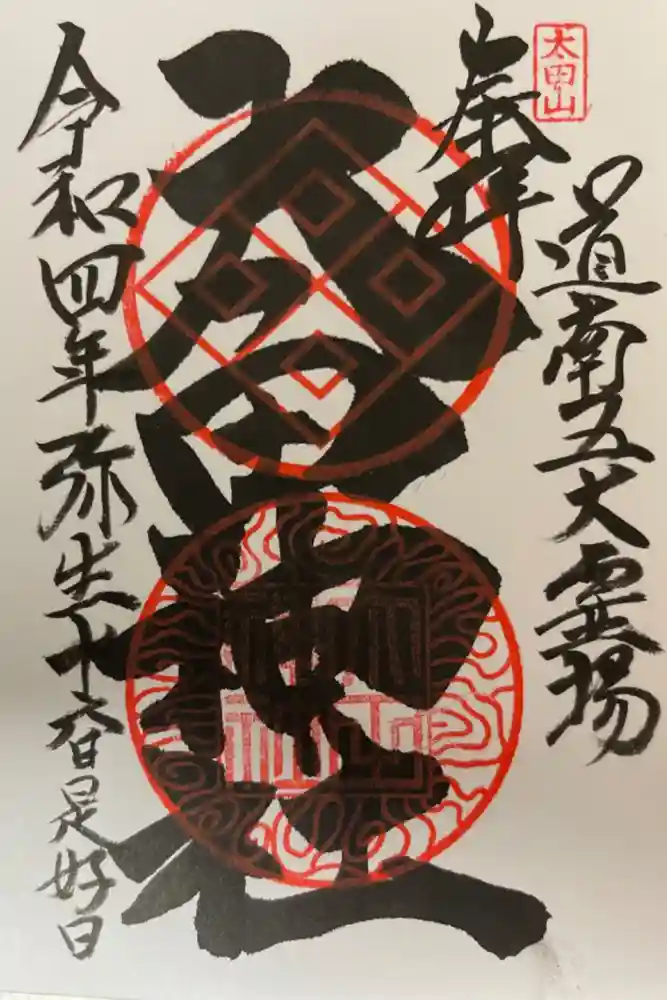 太田山
道南五大霊場
奉拝
太田神社
令和四年弥生十六日是好日